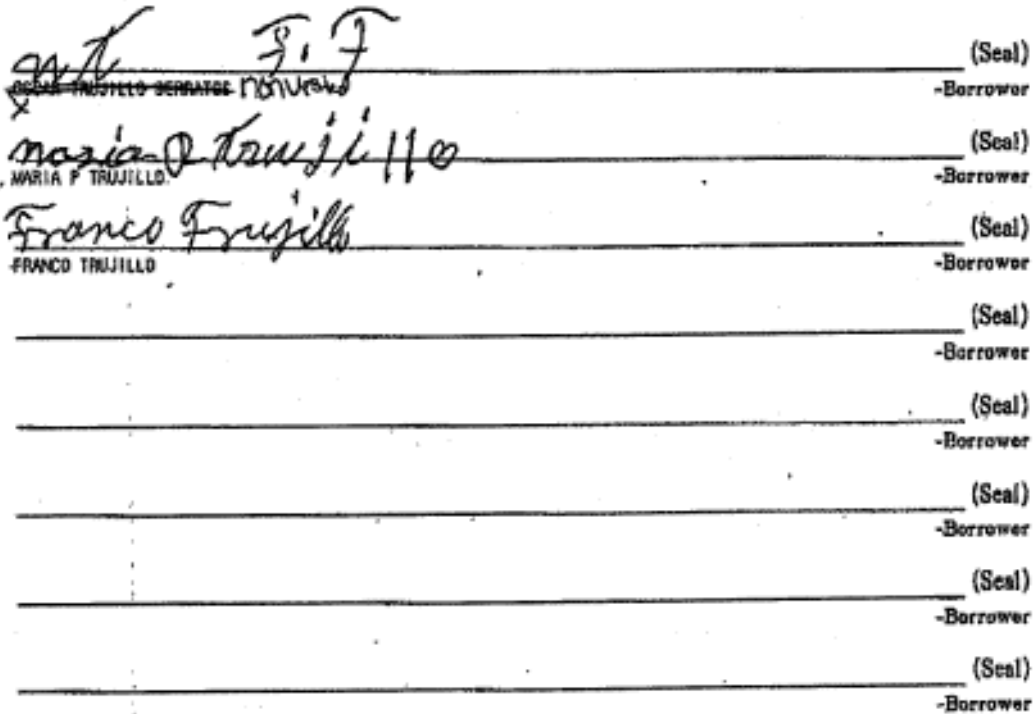 m t F. F (Seal)
OSCAR TRUJILLO SERRATOS -Borrower
X
maria P Trujillo (Seal)
MARIA P TRUJILLO. -Borrower
Franco Trujillo (Seal)
FRANCO TRUJILLO -Borrower
(Seal)
-Borrower
(Seal)
-Borrower
(Seal)
-Borrower
(Seal)
-Borrower
(Seal)
-Borrower